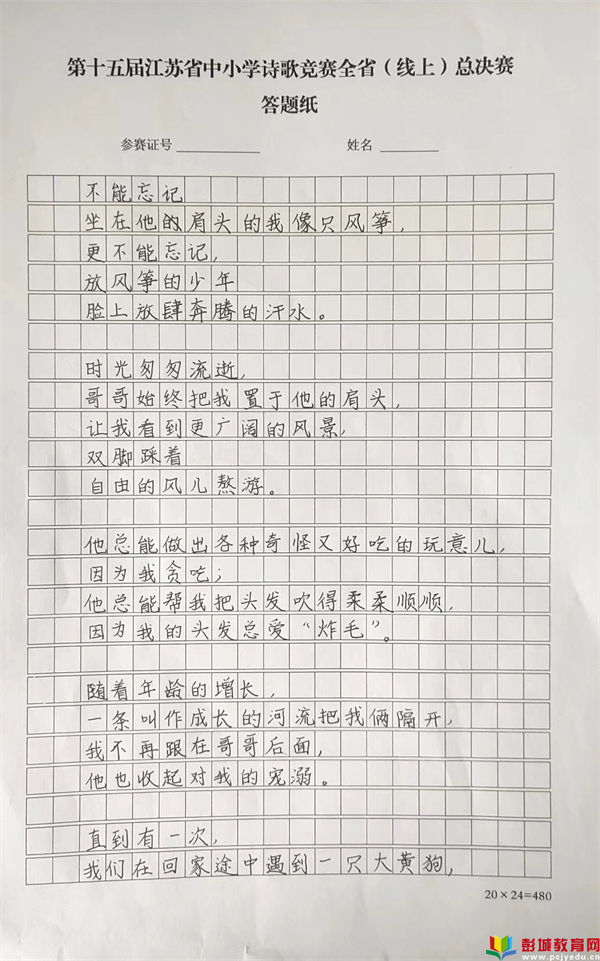 第十五届江苏省中小学诗歌竞赛全省（线上）总决赛
答题纸
参赛证号 姓名
不能忘记
坐在他的肩头的我像只风筝，
更不能忘记，
放风筝的少年
脸上放肆奔腾的汗水。
时光匆匆流逝，
哥哥始终把我置于他的肩头，
让我看到更广阔的风景，
双脚踩着
自由的风儿熬游。
他总能做出各种奇怪又好吃的玩意儿，
因为我贪吃；
他总能帮我把头发吹得柔柔顺顺，
因为我的头发总爱“炸毛”。
随着年龄的增长，
一条叫作成长的河流把我俩隔开，
我不再跟在哥哥后面，
他也收起对我的宠溺。
直到有一次，
我们在回家途中遇到一只大黄狗，
20×24=480
彭城教育网
www.pcjyedu.cn